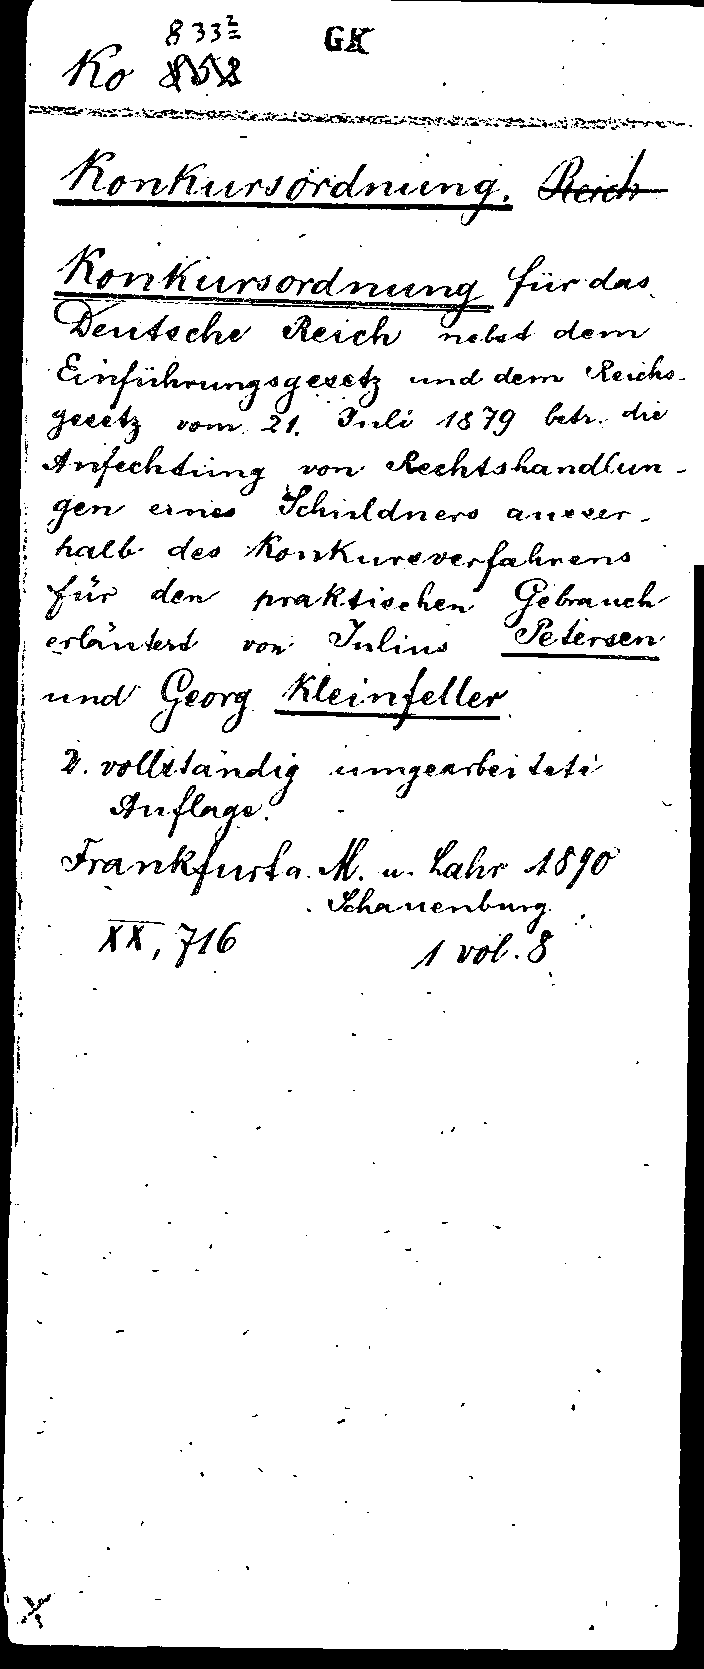 833²
GK
Ko
Konkursordnung. Reich
Konkursordnung für das
Deutsche Reich nebst dem
Einführungsgesetz und dem Reichs-
gesetz vom 21. Juli 1879 betr. die
Anfechtung von Rechtshandlun-
gen eines Schuldners ausser-
halb des Konkursverfahrens
für den praktischen Gebrauch
erläutert von Julius Petersen
und Georg Kleinfeller.
2. vollständig umgearbeitete
Auflage.
Frankfurt a. M. u. Lahr 1890
Schauenburg
XX, 716
1 vol. 8